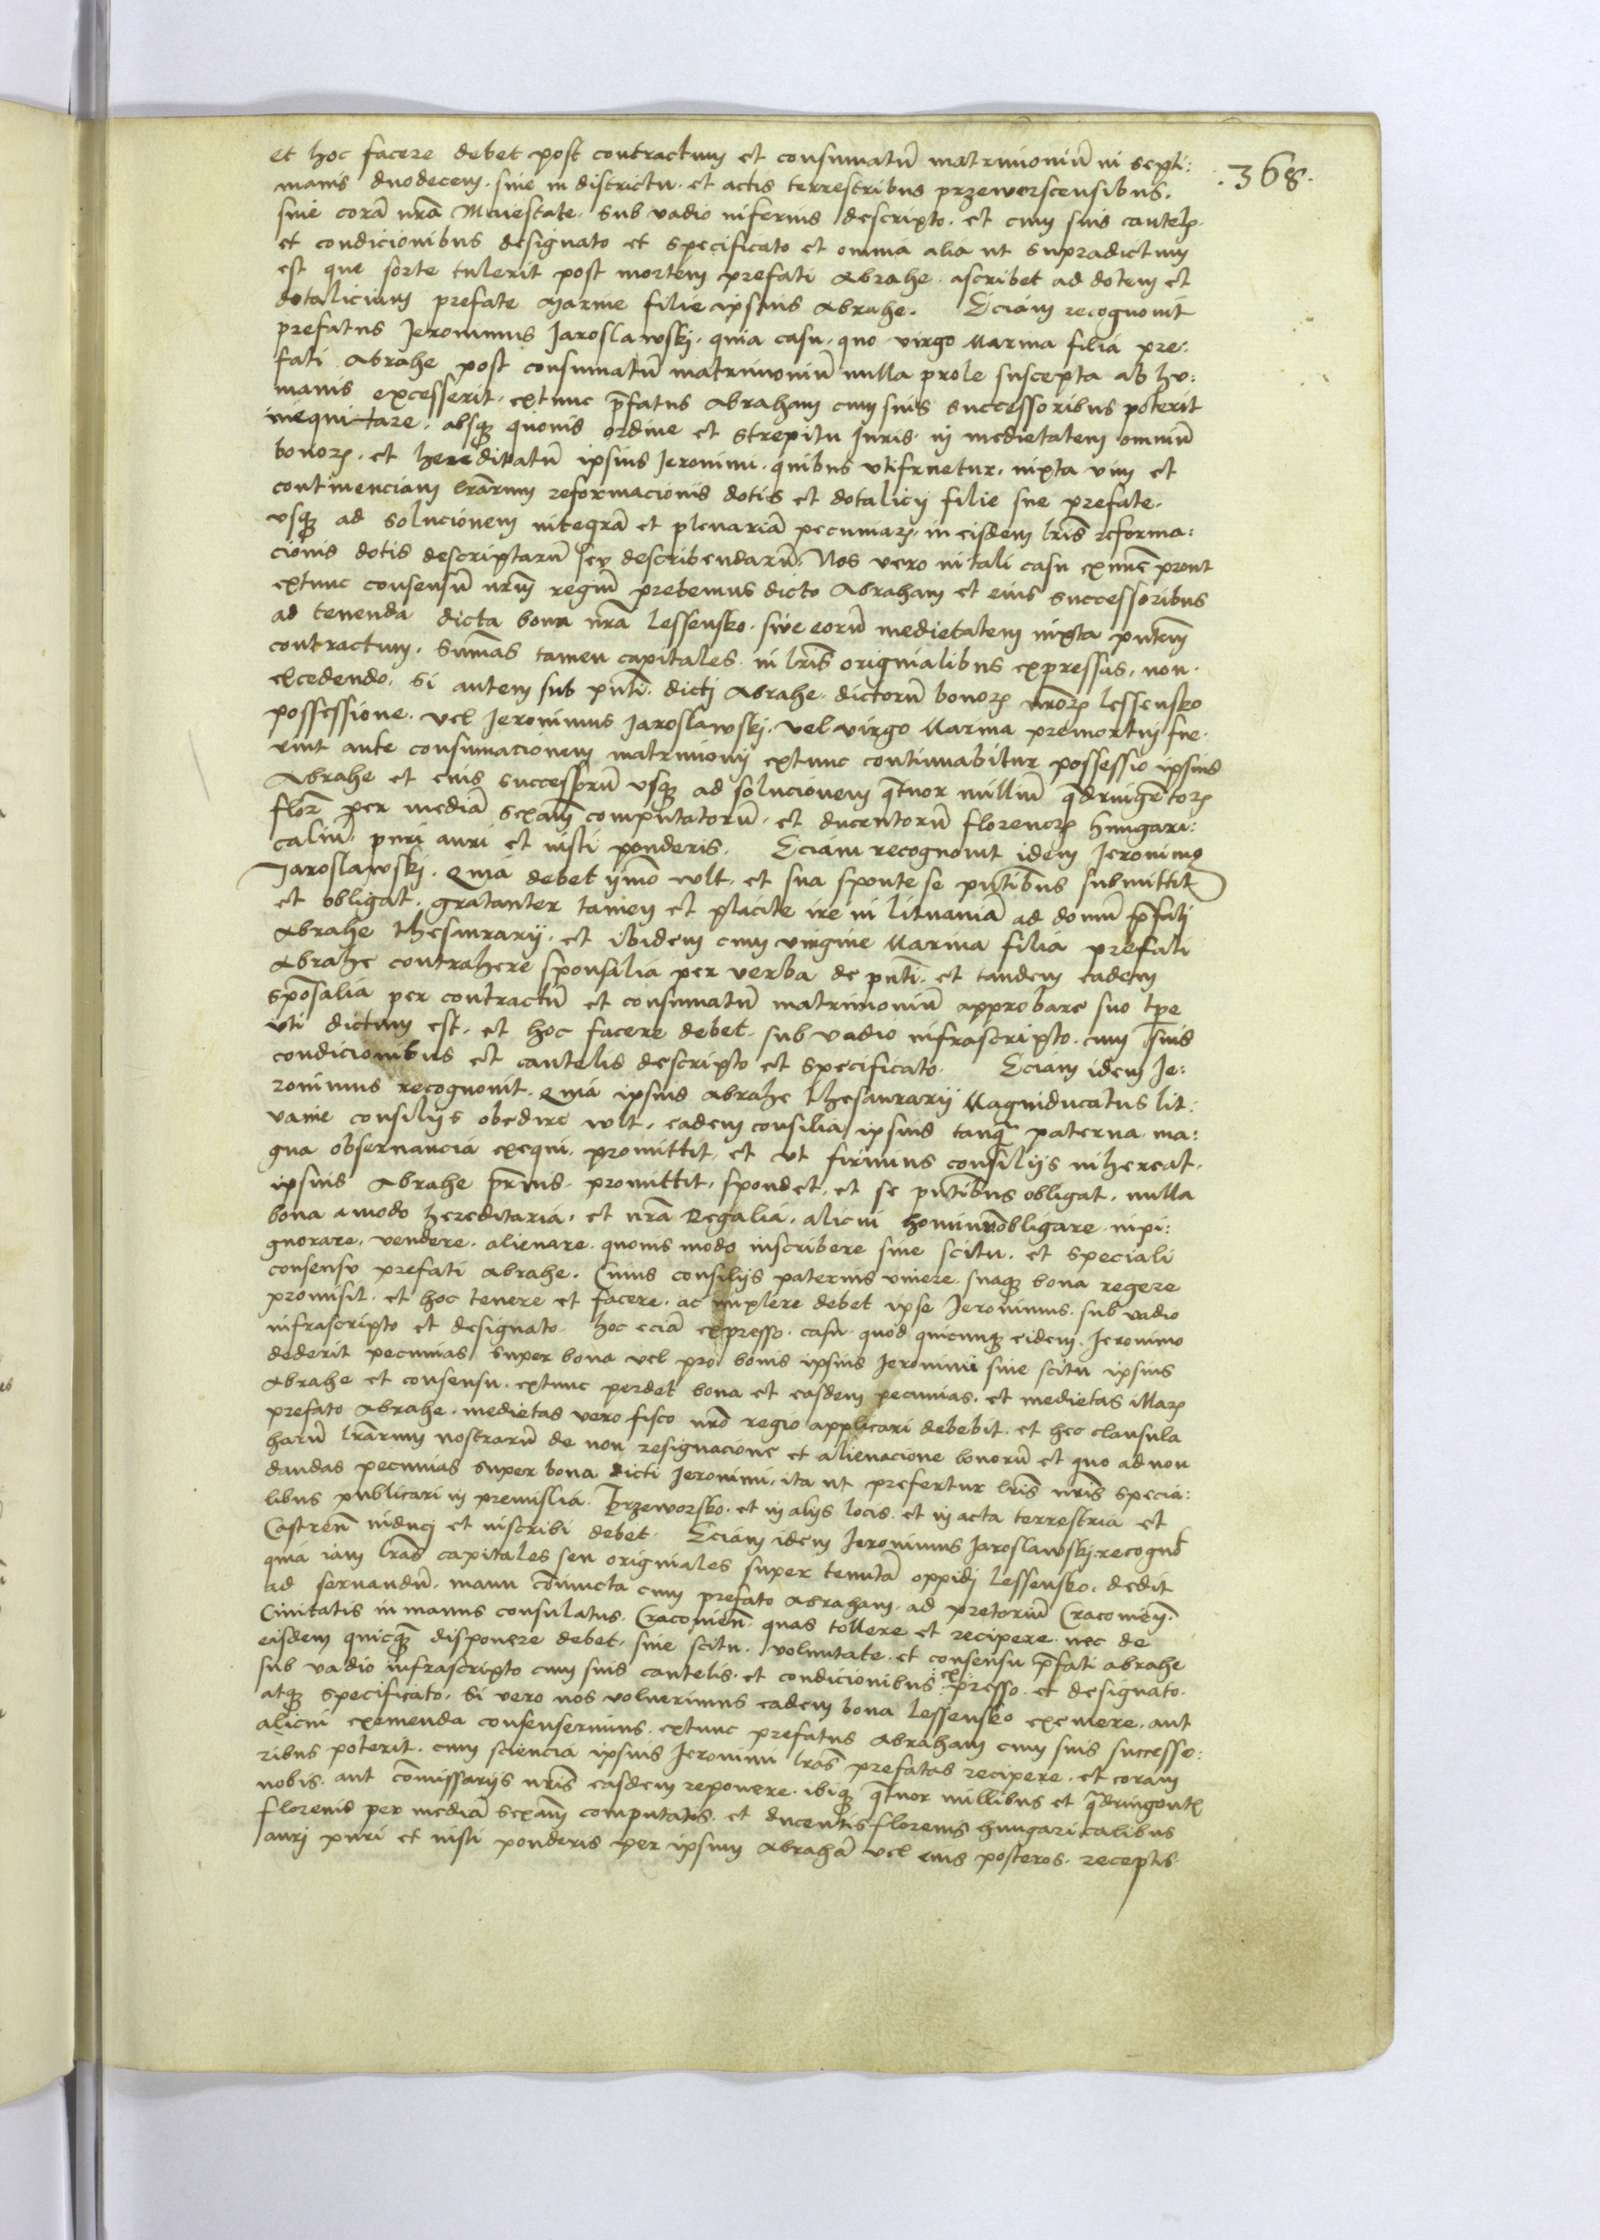 .368.
et hoc facere debet post contractum et consumatū matrimoniū in septi:
manis duodecem. siue in districtu. et actis terrestribus przeworscensibus.
siue corā nrā Maiestate. sub vadio inferius descripto. et cum suis cautelis
et condicionibus designato et specificato et omnia alia ut supradictum
est que sorte tulerit post mortem prefati Abrahe. ascribet ad dotem et
dotalicium prefate Marine filie ipsius Abrahe. Eciam recognouit
prefatus Jeronimus Jaroslawskj. quia casu. quo virgo Marina filia pre:
fati Abrahe post consumatū matrimoniū nulla prole suscepta ab hu:
manis excesserit. extunc p̄fatus Abraham cum suis successoribus poterit
inequitare. absq; quouis ordine et strepitu Juris. in medietatem omniū
bonorꝝ. et hereditatū ipsius Jeronimi. quibus vtifruetur. iuxta vim et
continenciam lrārum reformacionis dotis et dotalicij filie sue prefate.
vsq; ad solucionem integrā et plenariā pecuniarꝝ. in eisdem lrīs reforma:
cionis dotis descriptarū seu describendarū. Nos vero in tali casu exnūc prout
extunc consensū nrūm regiū prebemus dicto Abraham et eius successoribus
ad tenenda dicta bona nrā Lessensko. siue eorū medietatem iuxta pntēm
contractum. Summās tamen capitales. in lrīs originalibus expressas. non.
excedendo. Si autem sub pntī. dictj Abrahe. dictorū bonorꝝ nrōrꝝ Lessensko
possessione. vel Jeronimus Jaroslawskj. vel virgo Marina premortuj fue.
rint ante consumacionem matrimonij extunc continuabitur possessio ipsius
Abrahe et eius successorū vsq; ad solucionem q̄tuor milliū q̄dringētorꝝ
florꝝ per mediā sexām computatorū. et ducentorū florenorꝝ hungari:
caliū. puri auri et iusti ponderis. Eciam recognouit idem Jeronimus
Jaroslawskj. Quia debet ymmo wlt. et sua sponte se pntībus submittit
et obligat. gratanter tamen et placite ire in lituaniā ad domū p̄fatj
Abrahe thesaurarij. et ibidem cum virgine Marina filia prefati
Abrahe contrahere sponsalia per verba de pntī. et tandem eadem
sponsalia per contractū et consumatū matrimoniū approbare suo tpe
vti dictum est. et hoc facere debet. sub vadio infrascripto. cum suis
condicionibus et cautelis descripto et specificato. Eciam idem Je:
ronimus recognouit. Quia ipsius Abrahe thesaurarij Magniducatus lit:
vanie consilijs obedire wlt. eadem consilia ipsius tanq̄ paterna. ma:
gna obseruancia exequi. promittit. et ut firmius consilijs inhereat.
ipsius Abrahe p̄rnis. promittit. spondet. et se pntībus obligat. nulla
bona amodo hereditaria. et nrā Regalia. alicui hominū obligare inpi:
gnorare. vendere. alienare. quouis modo inscribere sine scitu. et speciali
consensu prefati Abrahe. Cuius consilijs paternis viuere. suaq; bona regere
promisit. et hoc tenere et facere. ac implere debet ipse Jeronimus. sub vadio
infrascripto et designato. hoc eciā expresso. casu. quod quicunq; eidem. Jeronimo
dederit pecunias super bona vel pro bonis ipsius Jeronimi sine scitu ipsius
Abrahe et consensu. extunc perdet bona et easdem pecunias. et medietas illarꝝ
prefato Abrahe. medietas vero fisco nrō regio applicari debebit. et hec clausula
harū lrārum nostrarū de non resignacione et alienacione bonorū et quo ad non
dandas pecunias super bona dicti Jeronimi. ita ut prefertur lrīs nrīs specia:
libus publicari in premislia. Przeworsko. et in alijs locis. et in acta terrestria et
Castreñ inducj et inscribi debet. Eciam idem Jeronimus Jaroslawskj. recognīt
quia iam lrās capitales seu originales super tenutā oppidj Lessensko. dedit
ad seruandū. manu coniuncta cum prefato Abraham. ad pretoriū Cracouieñ.
Ciuitatis in manus consulatus. Cracouieñ. quas tollere et recipere nec de
eisdem quicq̄ disponere debet. sine scitu. voluntate. et consensu p̄fati Abrahe
sub vadio infrascripto cum suis cautelis. et condicionibus expresso. et designato.
atq; specificato. Si vero nos voluerimus eadem bona Lessensko exemere. aut
alicui exemenda consenserimus. extunc prefatus Abraham cum suis successo:
ribus poterit. cum sciencia ipsius Jeronimi lrās prefatas recipere. et coram
nobis. aut commissarijs nrīs easdem reponere. ibiq; q̄tuor millibus et q̄dringentis
florenis per mediā sexām computatis. et ducentis florenis hungaricalibus
aurj puri et iusti ponderis per ipsum Abrahā vel eius posteros. receptis.